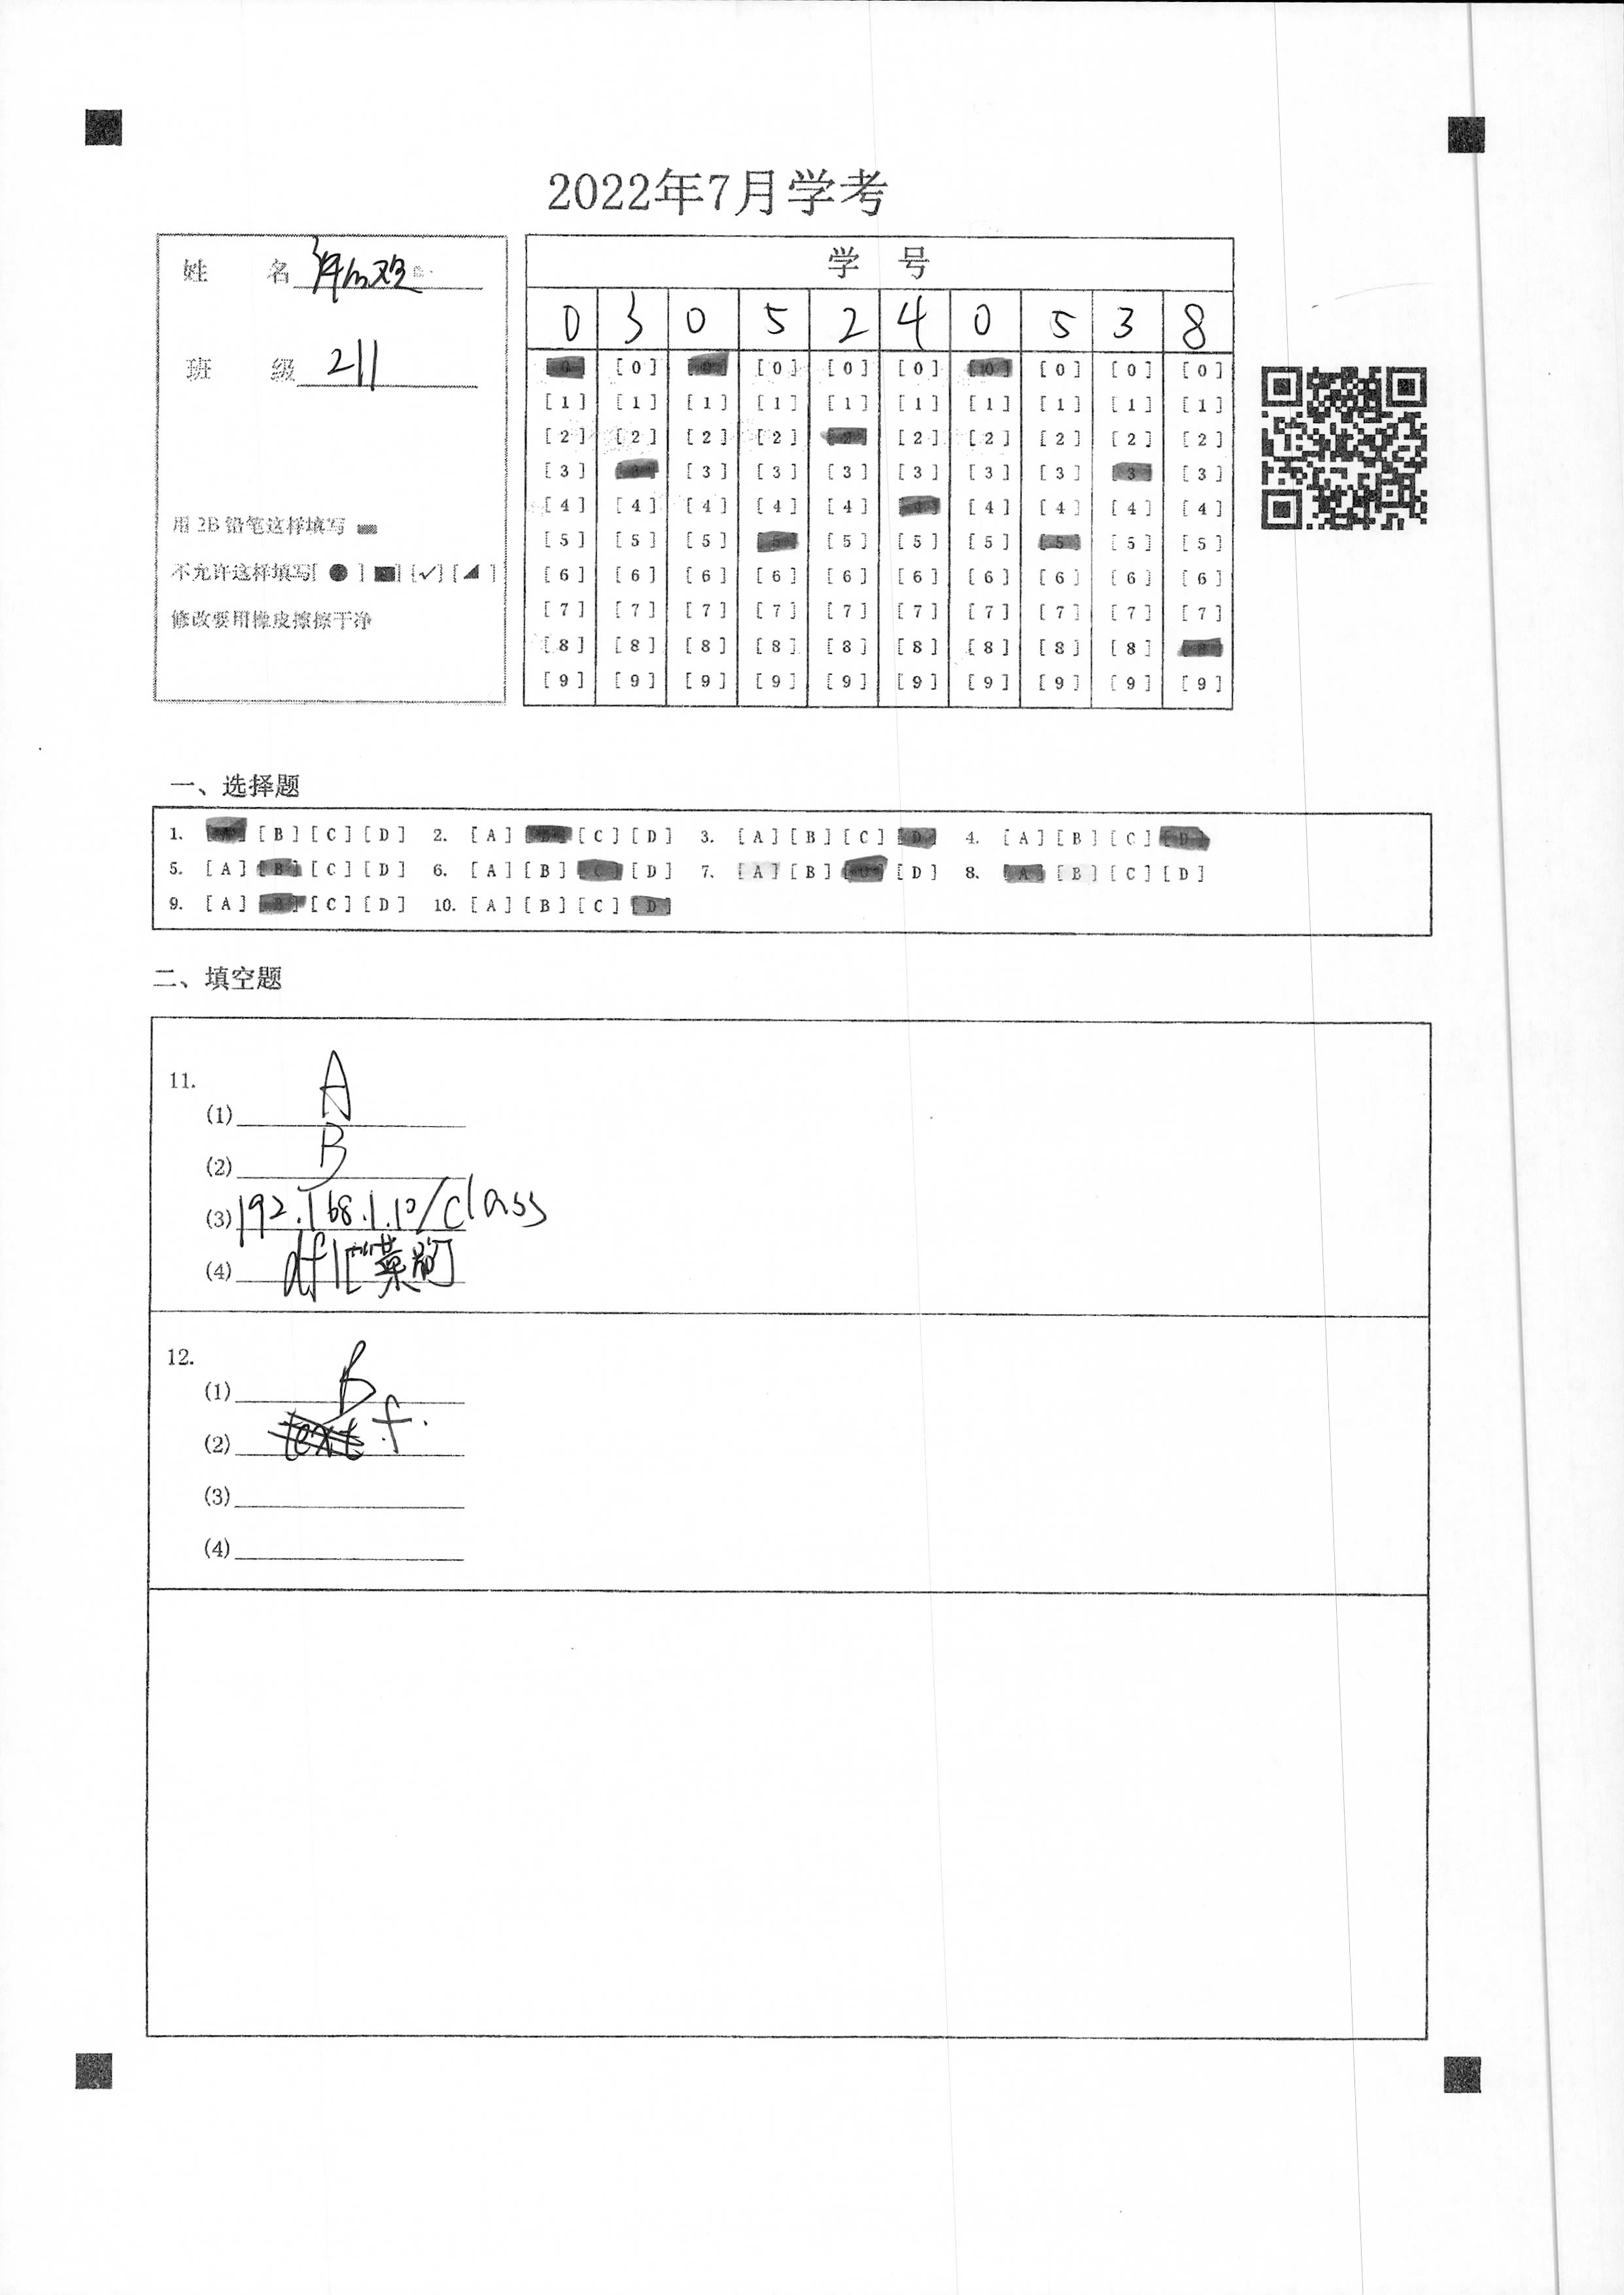 2022年7月学考
姓 名
班 级 211
用 2B 铅笔这样填写
不允许这样填写[ ● ] [■] [✓] [◢ ]
修改要用橡皮擦擦干净
学 号
0 3 0 5 2 4 0 5 3 8
[0] [0] [0] [0] [0] [0] [0] [0] [0] [0]
[1] [1] [1] [1] [1] [1] [1] [1] [1] [1]
[2] [2] [2] [2] [2] [2] [2] [2] [2] [2]
[3] [3] [3] [3] [3] [3] [3] [3] [3] [3]
[4] [4] [4] [4] [4] [4] [4] [4] [4] [4]
[5] [5] [5] [5] [5] [5] [5] [5] [5] [5]
[6] [6] [6] [6] [6] [6] [6] [6] [6] [6]
[7] [7] [7] [7] [7] [7] [7] [7] [7] [7]
[8] [8] [8] [8] [8] [8] [8] [8] [8] [8]
[9] [9] [9] [9] [9] [9] [9] [9] [9] [9]
一、选择题
1. [A] [B] [C] [D] 2. [A] [B] [C] [D] 3. [A] [B] [C] [D] 4. [A] [B] [C] [D]
5. [A] [B] [C] [D] 6. [A] [B] [C] [D] 7. [A] [B] [C] [D] 8. [A] [B] [C] [D]
9. [A] [B] [C] [D] 10. [A] [B] [C] [D]
二、填空题
11.
(1) A
(2) B
(3) 192.168.1.10/class
(4) df1["菜
12.
(1) B
(2) f.
(3)
(4)